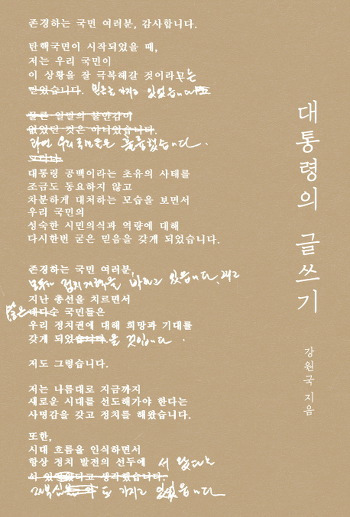 존경하는 국민 여러분, 감사합니다.
탄핵국면이 시작되었을 때,
저는 우리 국민이
이 상황을 잘 극복해갈 것이라고는
믿었습니다. 믿음은 있었습니다
없었던 것은 아니었습니다.
다만 우리 국민은 훌륭했습니다.
대통령 공백이라는 초유의 사태를
조금도 동요하지 않고
차분하게 대처하는 모습을 보면서
우리 국민의
성숙한 시민의식과 역량에 대해
다시한번 굳은 믿음을 갖게 되었습니다.
존경하는 국민 여러분,
바라고 있습니다.
지난 총선을 치르면서
많은 국민들은
우리 정치권에 대해 희망과 기대를
갖게 되었을 것입니다.
저도 그렇습니다.
저는 나름대로 지금까지
새로운 시대를 선도해가야 한다는
사명감을 갖고 정치를 해왔습니다.
또한,
시대 흐름을 인식하면서
항상 정치 발전의 선두에 서 있다는
가지고 있었습니다
대통령의 글쓰기
강원국 지음